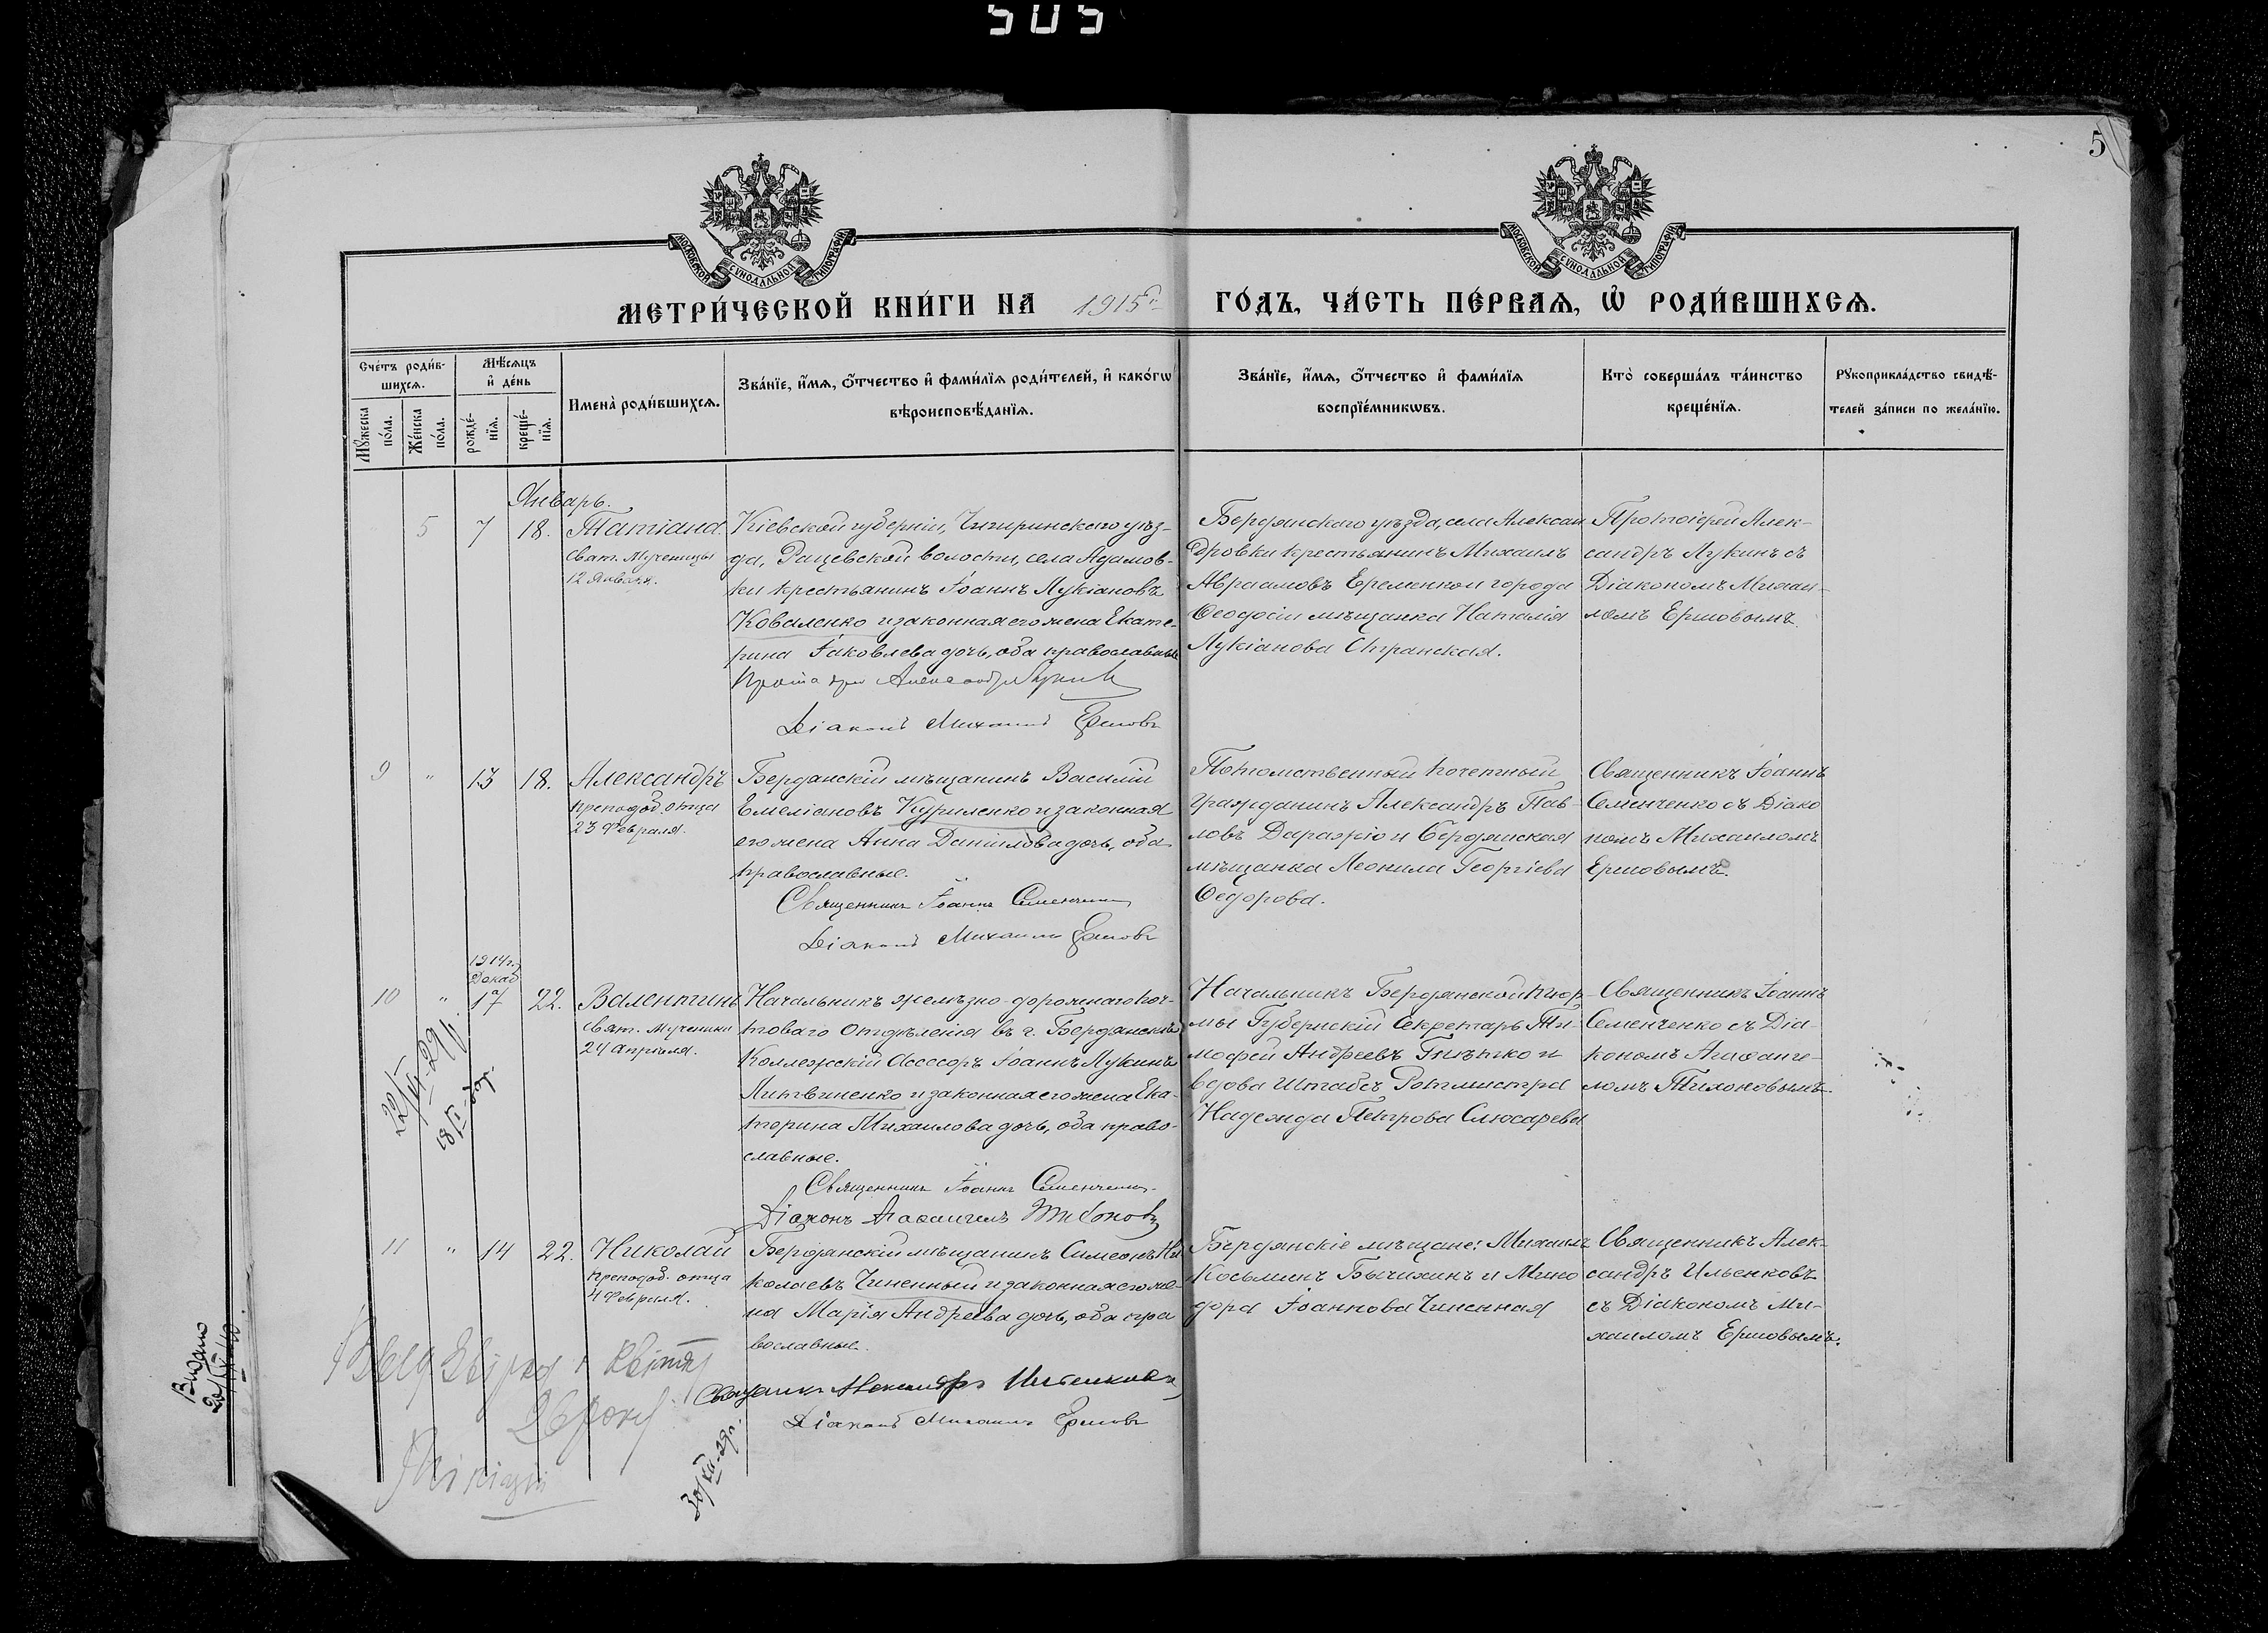 505
5
МОСКОВСКОЙ СѴНОДАЛЬНОЙ ТИПОГРАФІИ
МОСКОВСКОЙ СѴНОДАЛЬНОЙ ТИПОГРАФІИ
МЕТРИ́ЧЕСКОЙ КНИ́ГИ НА 1915й ГО́ДЪ, ЧА́СТЬ ПЕ́РВАѦ, Ѽ РОДИ́ВШИХСѦ.
Сче́тъ роди́в-
шихсѧ.
Мꙋ́жеска
по́ла.
Же́нска
по́ла.
Мѣ́сѧцъ
и҆ де́нь
рожде́-
нїѧ.
креще́-
нїѧ.
И҆мена̀ роди́вшихсѧ.
Зва́нїе, и҆́мѧ, ѻ҆́тчество и҆ фами́лїѧ роди́телей, и҆ како́гѡ
вѣроисповѣ́данїѧ.
Зва́нїе, и҆́мѧ, ѻ҆́тчество и҆ фами́лїѧ
воспрїе́мникѡвъ.
Кто̀ соверша́лъ та́инство
креще́нїѧ.
Рꙋкоприкла́дство свидѣ́-
телей за́писи по жела́нїю.
Январь.
5 7 18.
Татіана.
Свят. Мученицы
12 Января.
Кіевской губерніи, Чигиринскаго уѣз-
да, Рацевской волости, села Адамов-
ки крестьянинъ Іоаннъ Лукіановъ
Коваленко и законная его жена Екате-
рина Іаковлева дочь, оба православные
Александръ Лукинъ
Діаконъ Михаилъ Ершовъ
Бердянскаго уѣзда, села Алексан
дровки крестьянинъ Михаилъ
Авраамовъ Еременко и города
Ѳеодосіи мѣщанка Наталія
Лукіанова Странская.
Протоіерей Алек-
сандръ Лукинъ съ
Діакономъ Михаи-
ломъ Ершовымъ.
9 " 13 18.
Александръ
преподоб. отца
23 Февраля.
Бердянскій мѣщанинъ Василій
Емеліановъ Куриленко и законная
его жена Анна Даніилова дочь, оба
православные.
Священникъ Іоаннъ Семенченко
Діаконъ Михаилъ Ершовъ
Потомственный почетный
гражданинъ Александръ Пав-
ловъ Даражіо и Бердянская
мѣщанка Леонила Георгіева
Ѳедорова.
Священникъ Іоаннъ
Семенченко съ Діако
номъ Михаиломъ
Ершовымъ.
1914г.
Декаб
10 " 17 22.
Валентинъ
Свят. Мученика
24 Апрѣля.
Начальникъ желѣзно-дорожнаго поч-
товаго отдѣленія въ г. Бердянскѣ
Коллежскій Ассесоръ Іоаннъ Лукинъ
Литвиненко и законная его жена Ека-
терина Михаилова дочь, оба право-
славные.
Священникъ Іоаннъ Семенченко
Діаконъ Агаѳангелъ Тихоновъ
Начальникъ Бердянской тюр-
мы Губернскій Секретарь Ти-
мофей Андреевъ и
вдова Штабсъ Ротмистра
Надежда Петрова Слюсарева
Священникъ Іоаннъ
Семенченко съ Діа-
кономъ Агаѳанге-
ломъ Тихоновымъ.
11 " 14 22.
Николай
преподоб. отца
4 Февраля.
Бердянскій мѣщанинъ Симеонъ Ни
колаевъ Чиненный и законная его же-
на Марія Андреева дочь, оба пра
вославные.
Священникъ Александръ Ильенковъ
Діаконъ Михаилъ Ершовъ
Бердянскіе мѣщане: Михаилъ
Косьминъ Бычихинъ и Мино
дора Іоаннова Чиненная
Священникъ Алек-
сандръ Ильенковъ
съ Діакономъ Ми-
хаиломъ Ершовымъ.
30/XII-29р.
Видано